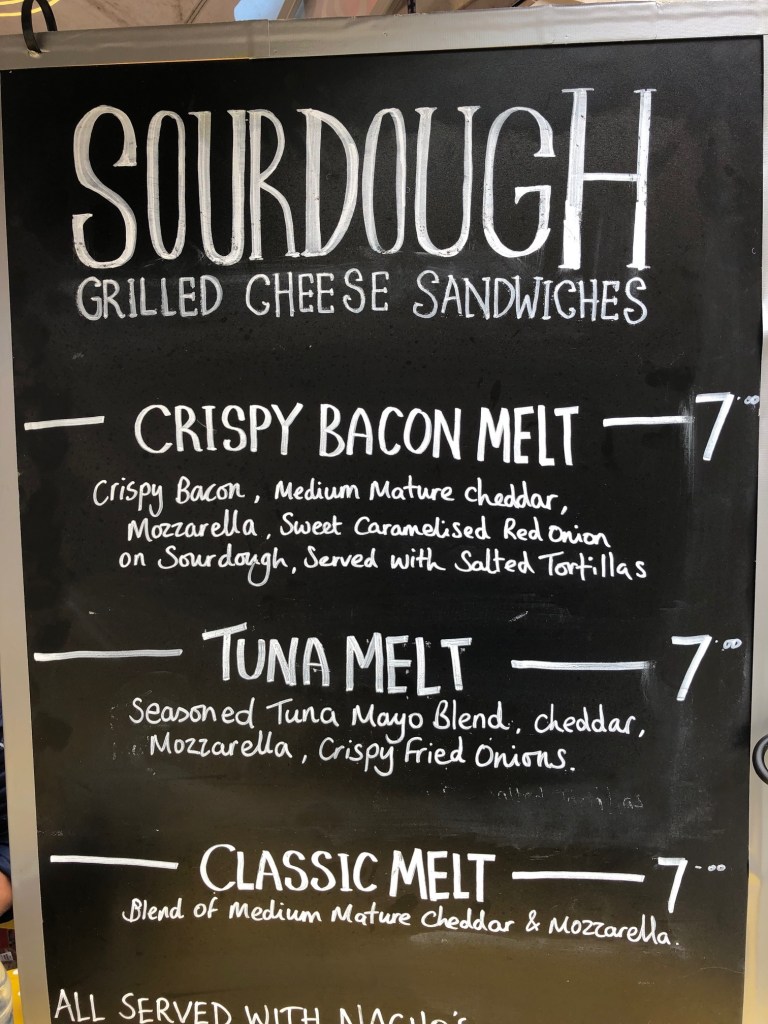 SOURDOUGH
GRILLED CHEESE SANDWICHES
CRISPY BACON MELT 7.00
Crispy Bacon, Medium Mature Cheddar,
Mozzarella, Sweet Caramelised Red Onion
on Sourdough, Served with Salted Tortillas
TUNA MELT 7.00
Seasoned Tuna Mayo Blend, Cheddar,
Mozzarella, Crispy Fried Onions.
CLASSIC MELT 7.00
Blend of Medium Mature Cheddar & Mozzarella.
ALL SERVED WITH NACHO'S